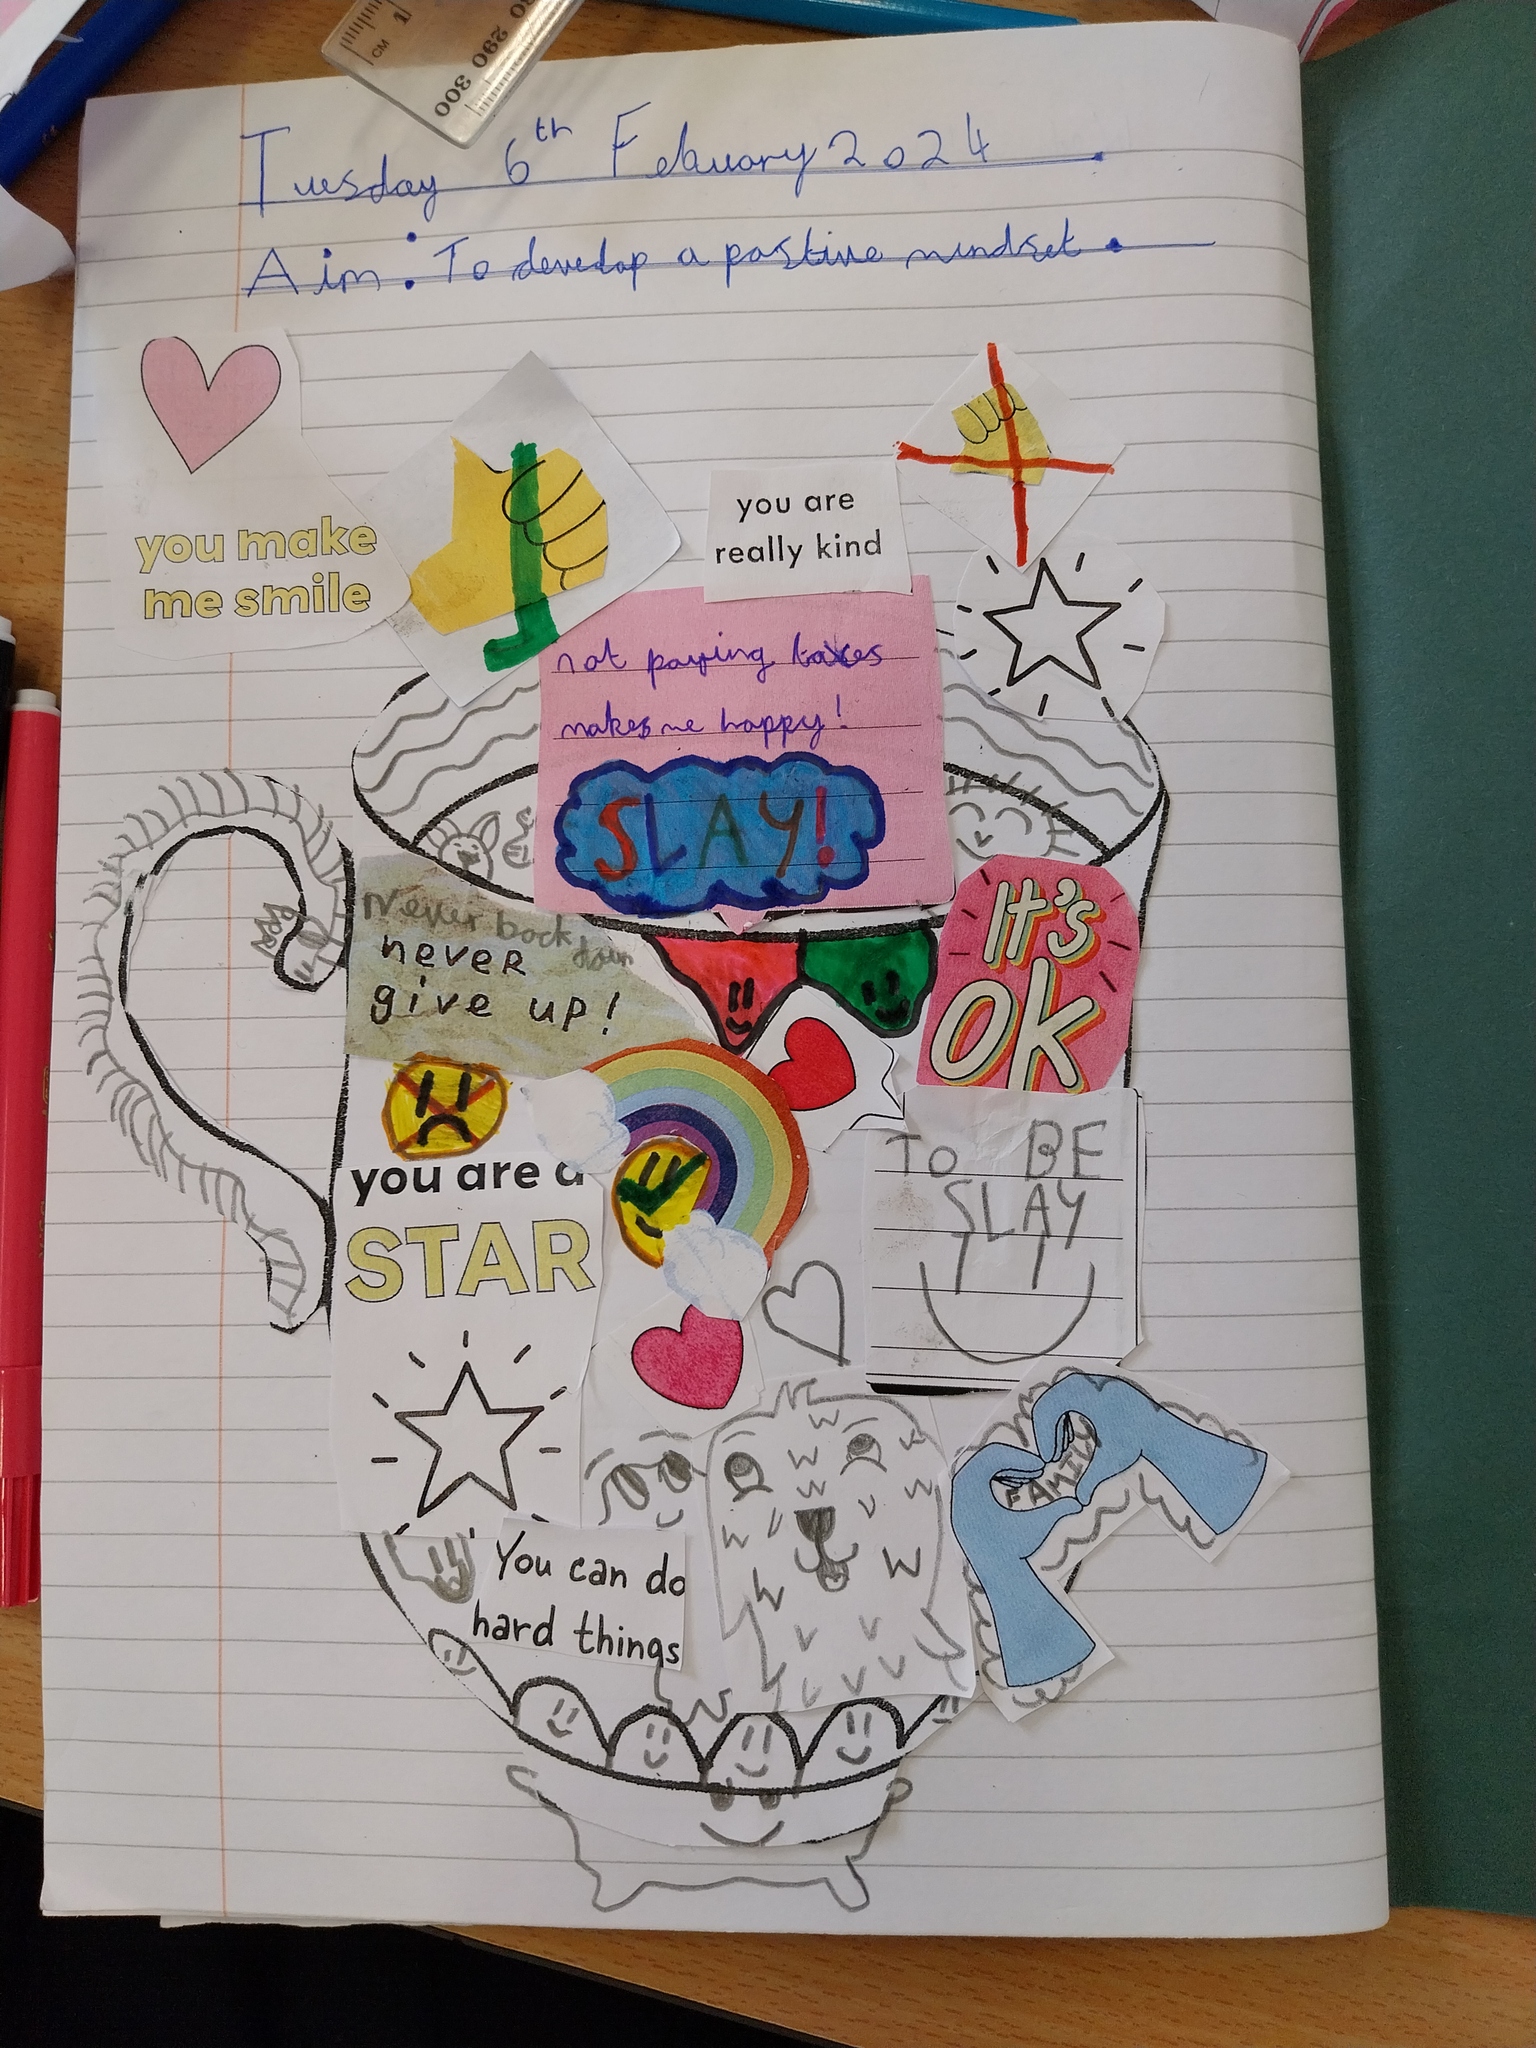 CM 1
290 300
Tuesday 6th Febuary 2024
Aim: To develop a postive mindset.
you make
me smile
you are
really kind
not paying taxes
makes me happy!
SLAY!
Never back down
never
give up!
IT'S
OK
you are a
STAR
TO BE
SLAY
FAMILY
You can do
hard things